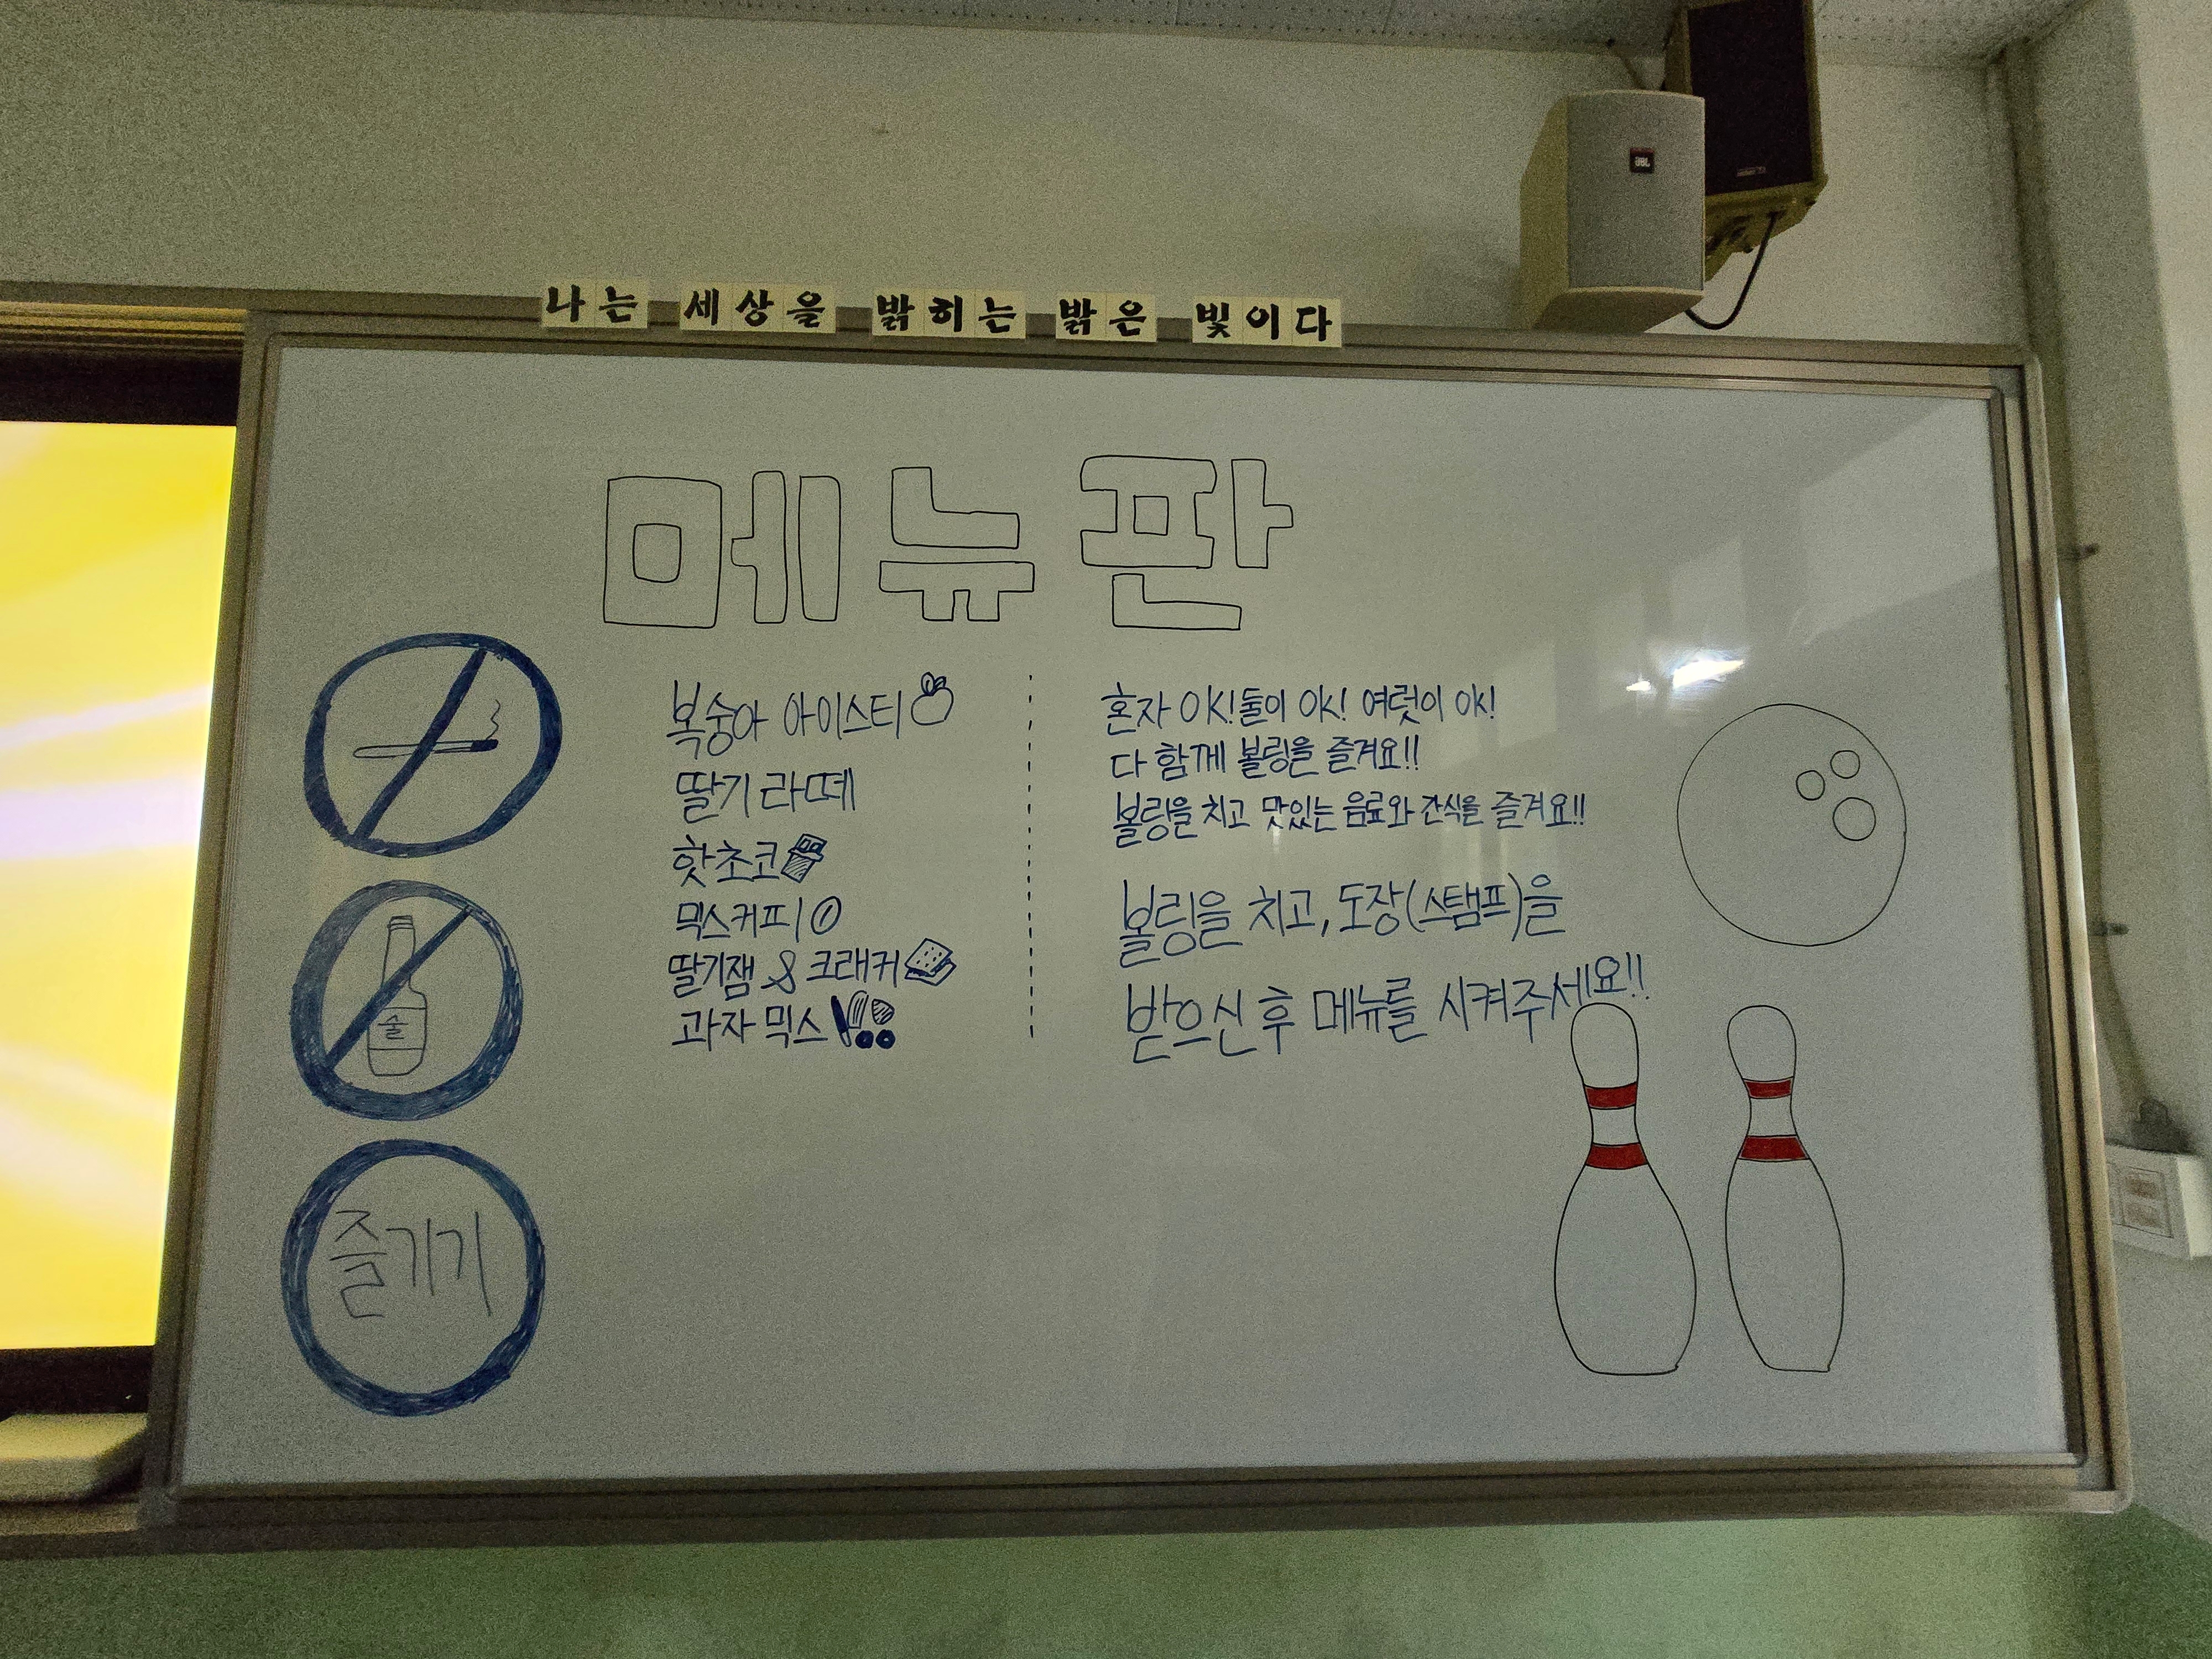 JBL
나는 세상을 밝히는 밝은 빛이다
메뉴판
복숭아 아이스티
딸기 라떼
핫초코
믹스커피
딸기잼 & 크래커
과자 믹스
혼자 OK! 둘이 OK! 여럿이 OK!
다 함께 볼링을 즐겨요!!
볼링을 치고 맛있는 음료와 간식을 즐겨요!!
볼링을 치고, 도장(스탬프)을
받으신 후 메뉴를 시켜주세요!!
술
즐기기